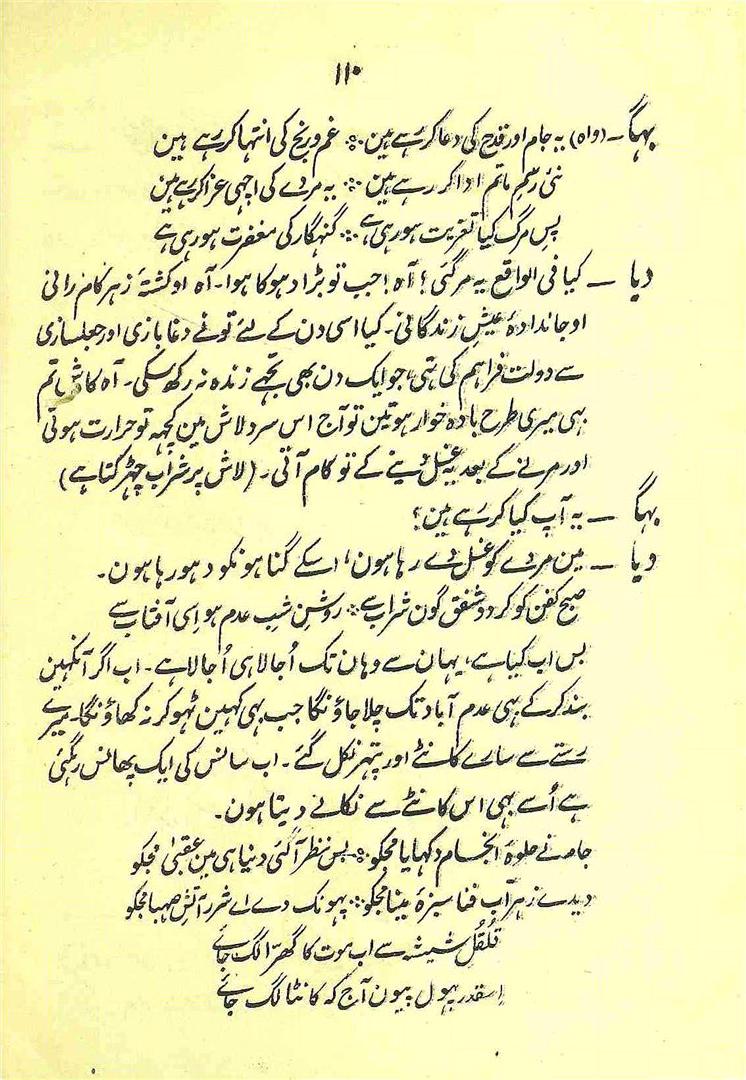 ۱۱۰
بہگا ـ (واہ) یہ جام اور قدح کی دعا کر رہے ہین ؞ غم و رنج کی انتہا کر رہے ہین
نئی رسمِ ماتم ادا کر رہے ہین ؞ یہ مردے کی اچہی عزا کر رہے ہین
پسِ مرگ کیا تعزیت ہو رہی ہے ؞ گنہگار کی مغفرت ہو رہی ہے
دیا ــ کیا فی الواقع یہ مر گئی ؟ آہ ! جب تو بڑا دہوکا ہوا ـ آہ او کشتۂ زہر کام رانی
او جاندادۂ عیشِ زندگانی ـ کیا اسی دن کے لئے تو نے دغا بازی اور جعلسازی
سے دولت فراہم کی تہی، جو ایک دن بھی تجہے زندہ نہ رکھ سکی ـ آہ کاش تم
بہی میری طرح بادہ خوار ہوتین تو آج اس سرد لاش مین کچہہ تو حرارت ہوتی
اور مرنے کے بعد یہ غسل دینے کے تو کام آتی ـ (لاش پر شراب چہڑکتا ہے)
بہگا ــ یہ آپ کیا کر رہے ہین ؟
دیا ــ مین مردے کو غسل دے رہا ہون، اسکے گناہونکو دہو رہا ہون ـ
صبح کفن کو کر دو شفق گون شراب سے ؞ روشن شبِ عدم ہو اِسی آفتاب سے
بس اب کیا ہے، یہان سے وہان تک اُجالا ہی اُجالا ہے ـ اب اگر آنکہین
بند کر کے بہی عدم آباد تک چلا جاؤنگا جب بہی کہین ٹہوکر نہ کھاؤنگا ـ میرے
رستے سے سارے کانٹے اور پتہر نکل گئے ـ اب سانس کی ایک پھانس رہ گئی
ہے اُسے بہی اس کانٹے سے نکالے دیتا ہون ـ
جام نے جلوۂ انجام دکہایا مجکو ؞ بس نظر آگئی دنیا ہی مین عقبیٰ مجکو
دیدے زہرآب فنا سبزۂ مینا مجکو ؞ پہونک دے اے شررِ آتشِ صہبا مجکو
قُلقُلِ شیشہ سے اب موت کا گھرّا لگ جائے
اِسقدر پہول پیون آج کہ کانٹا لگ جائے